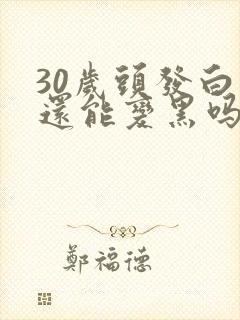 30歲頭發白
還能變黑嗎
鄭福德